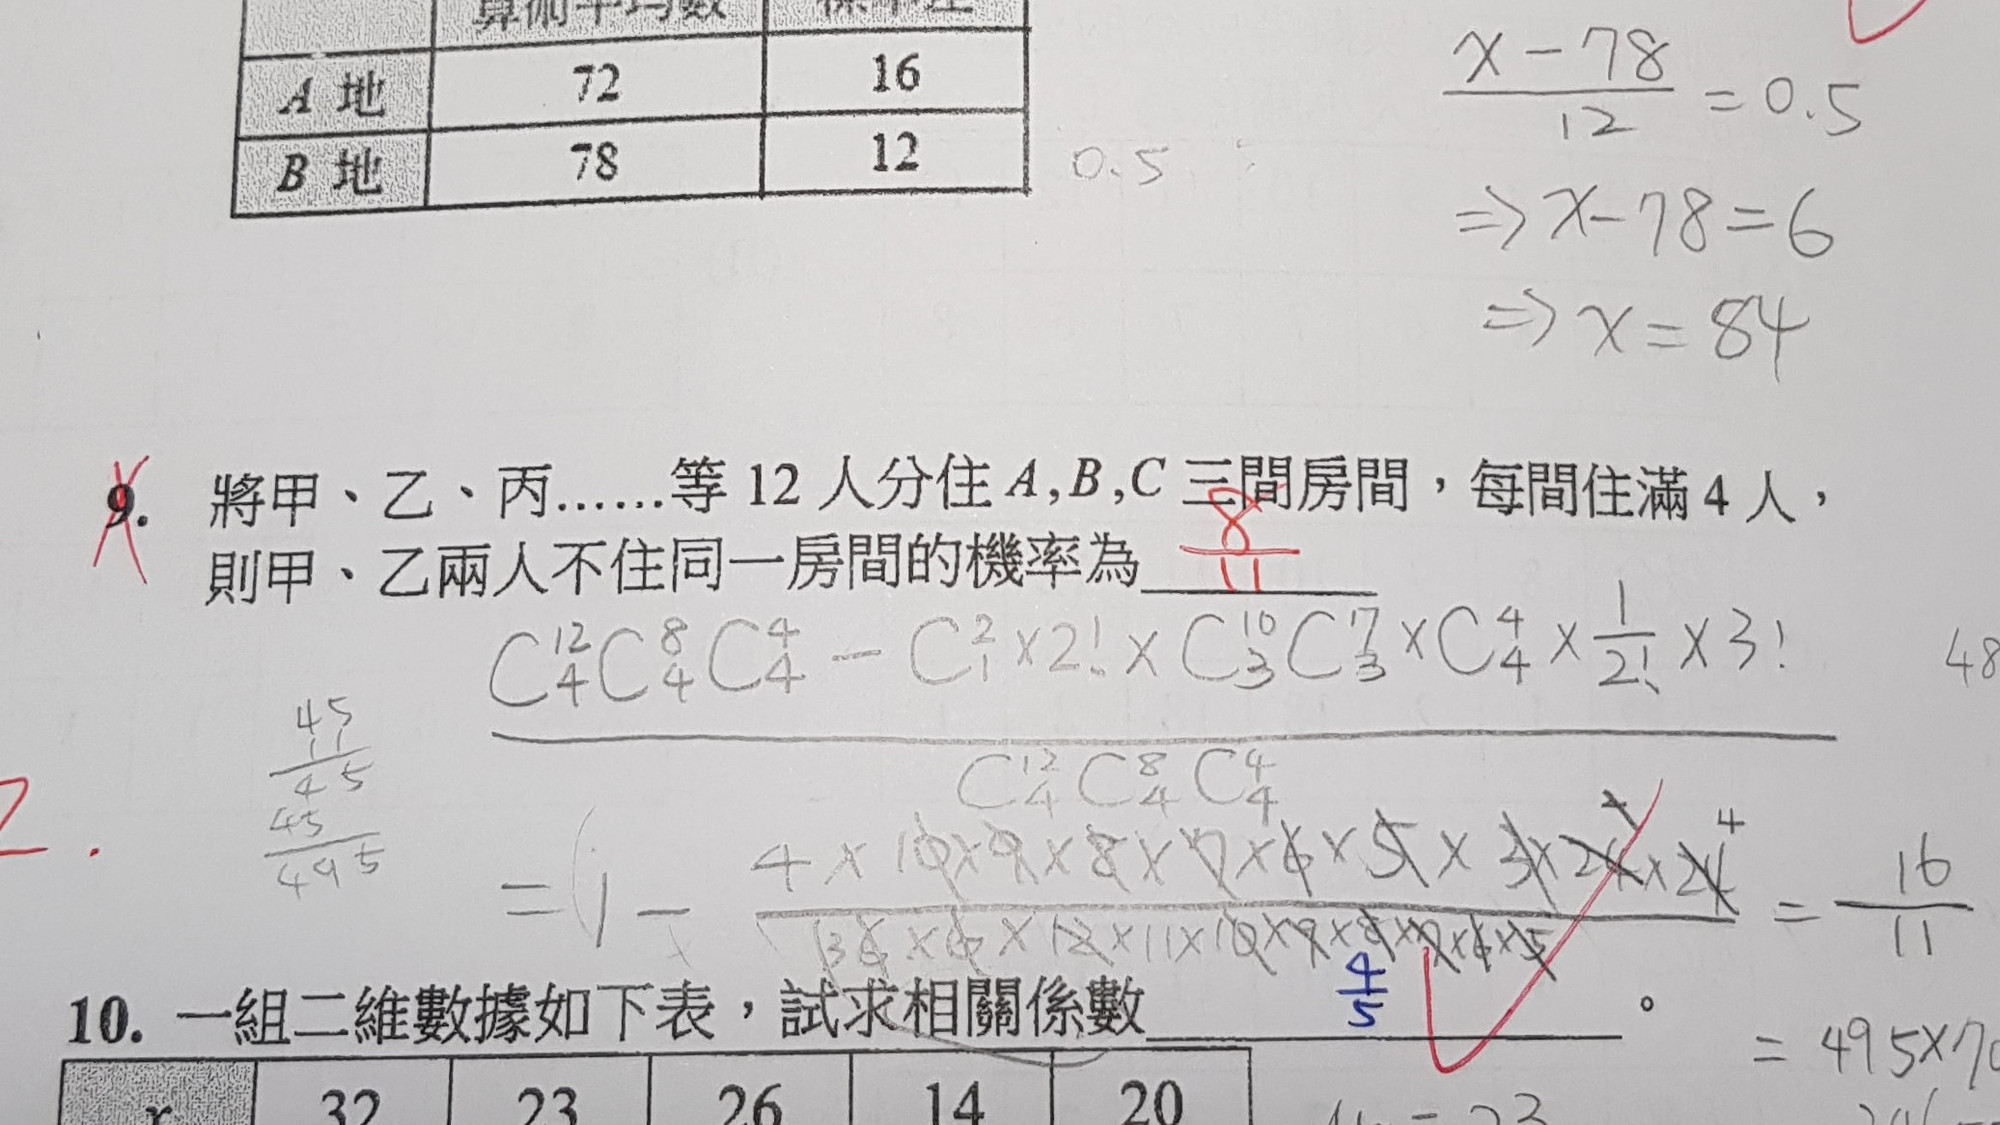 算術平均數 標準差
A 地 72 16
B 地 78 12
0.5
x-78/12 = 0.5
⇒ x-78=6
⇒ x = 84
9. 將甲、乙、丙……等 12 人分住 A,B,C 三間房間，每間住滿 4 人，
則甲、乙兩人不住同一房間的機率為 8/11
C¹²₄C⁸₄C⁴₄ - C²₁×2!×C¹⁰₃C⁷₃×C⁴₄×1/2!×3!
C¹²₄C⁸₄C⁴₄
48
45
11
45
45
495
2.
= 1 - 4×10×9×8×7×6×5×3×24×24 = 16/11
4
×12×11×10×9×8×7×6×5
10. 一組二維數據如下表，試求相關係數 4/5 。
= 495×70
x 32 23 26 14 20